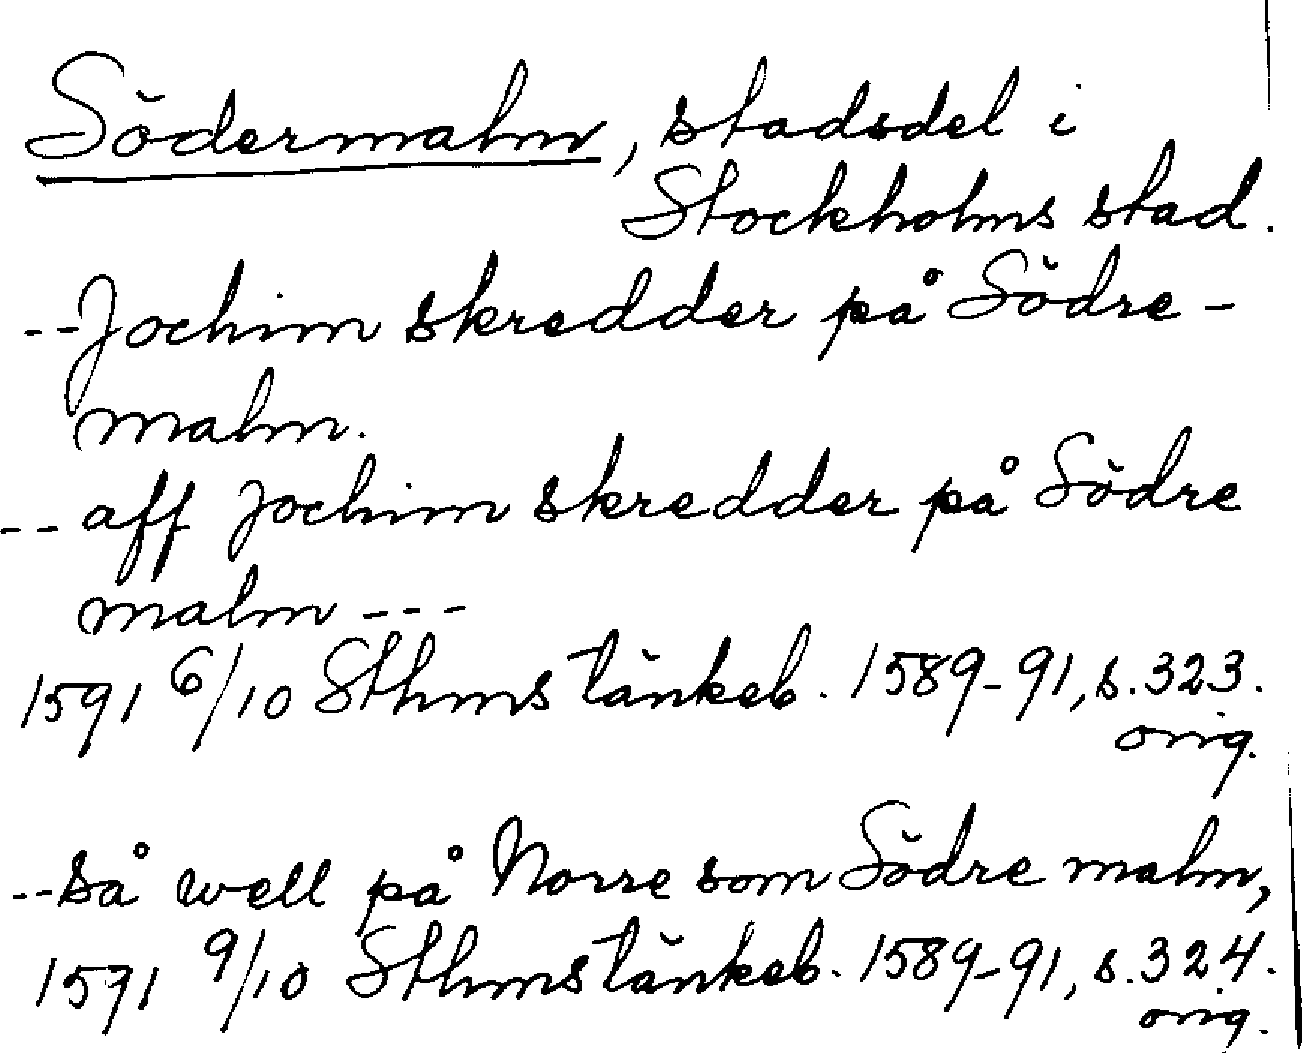 Södermalm, stadsdel i
Stockholms stad.
--Jochim skredder på Södre-
malm.
-- aff Jochim skredder på Södre
malm ---
1591 6/10 Sthms tänkeb. 1589-91, s. 323.
orig.
--så well på Norre som Södre malm,
1591 9/10 Sthms tänkeb. 1589-91, s. 324.
orig.